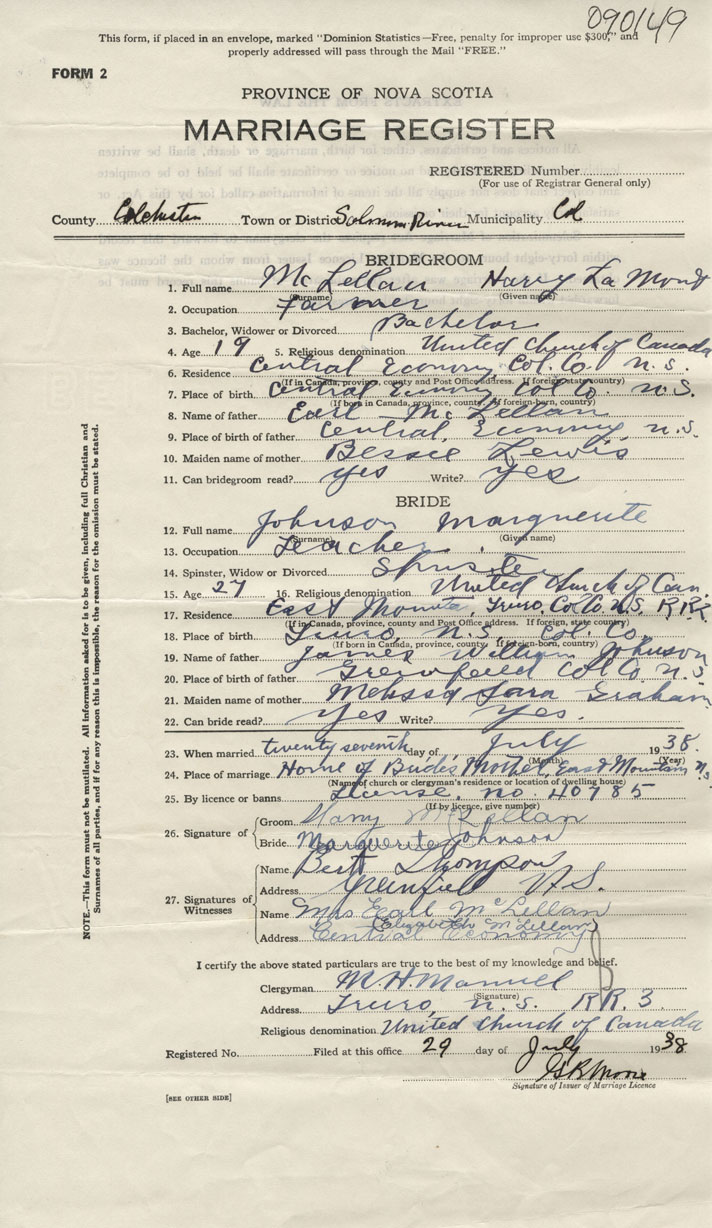 090149
This form, if placed in an envelope, marked "Dominion Statistics—Free, penalty for improper use $300," and
properly addressed will pass through the Mail "FREE."
FORM 2
PROVINCE OF NOVA SCOTIA
MARRIAGE REGISTER
REGISTERED Number
(For use of Registrar General only)
County Colchester Town or District Salmon River Municipality Col
BRIDEGROOM
1. Full name McLellan Harry La Mont
(Surname) (Given name)
2. Occupation Farmer
3. Bachelor, Widower or Divorced Bachelor
4. Age 19 5. Religious denomination United Church of Canada
6. Residence Central Economy Col. Co. N.S.
(If in Canada, province, county and Post Office address. If foreign, state country)
7. Place of birth Central Economy Col Co. N.S.
(If born in Canada, province, county. If foreign-born, country)
8. Name of father Earl McLellan
9. Place of birth of father Central Economy, N.S.
10. Maiden name of mother Bessie Lewis
11. Can bridegroom read? yes Write? yes
BRIDE
12. Full name Johnson Marguerite
(Surname) (Given name)
13. Occupation Teacher
14. Spinster, Widow or Divorced Spinster
15. Age 27 16. Religious denomination United Church of Can.
17. Residence East Mountain, Truro, Col Co. N.S. RR
(If in Canada, province, county and Post Office address. If foreign, state country)
18. Place of birth Truro, N.S. Col. Co.
(If born in Canada, province, county. If foreign-born, country)
19. Name of father James William Johnson
20. Place of birth of father Greenfield Col Co N.S.
21. Maiden name of mother Melissa Sara Graham
22. Can bride read? yes Write? yes.
23. When married twenty seventh day of July 1938.
(Month) (Year)
24. Place of marriage Home of Bride's Mother, East Mountain N.S.
(Name of church or clergyman's residence or location of dwelling house)
25. By licence or banns License, no. 40785
(If by licence, give number)
26. Signature of Groom Harry McLellan
Bride Marguerite Johnson
27. Signatures of Witnesses Name Bert Thompson
Address Greenfield N.S.
Name Mrs Earl McLellan
(Elizabeth McLellan)
Address Central Economy
I certify the above stated particulars are true to the best of my knowledge and belief.
Clergyman M. H. Manuel
(Signature)
Address Truro, N.S. RR 3
Religious denomination United Church of Canada
Registered No. Filed at this office 29 day of July 1938
G R Moore
Signature of Issuer of Marriage Licence
[SEE OTHER SIDE]
NOTE.—This form must not be mutilated. All information asked for is to be given, including full Christian and
Surnames of all parties, and if for any reason this is impossible, the reason for the omission must be stated.